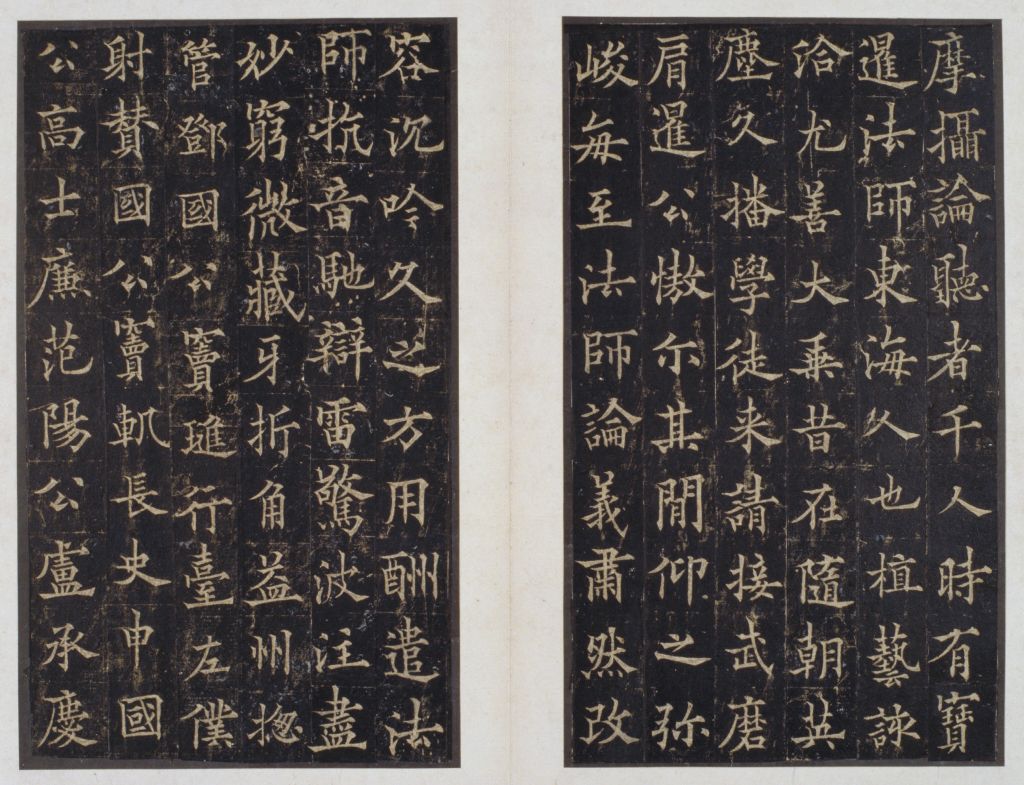 摩攝論聽者千人時有寶
暹法師東海人也植藝該
洽尤善大乗昔在隨朝英
塵久播學徒来請接武磨
肩暹公慠尓其閒仰之弥
峻每至法師論義肅然改
容沉吟久之方用酬遣法
師抗音馳辯雷驚波注盡
妙窮微藏牙折角益州揔
管鄧國公竇璡行臺左僕
射贊國公竇軌長史申國
公高士廉范陽公盧承慶